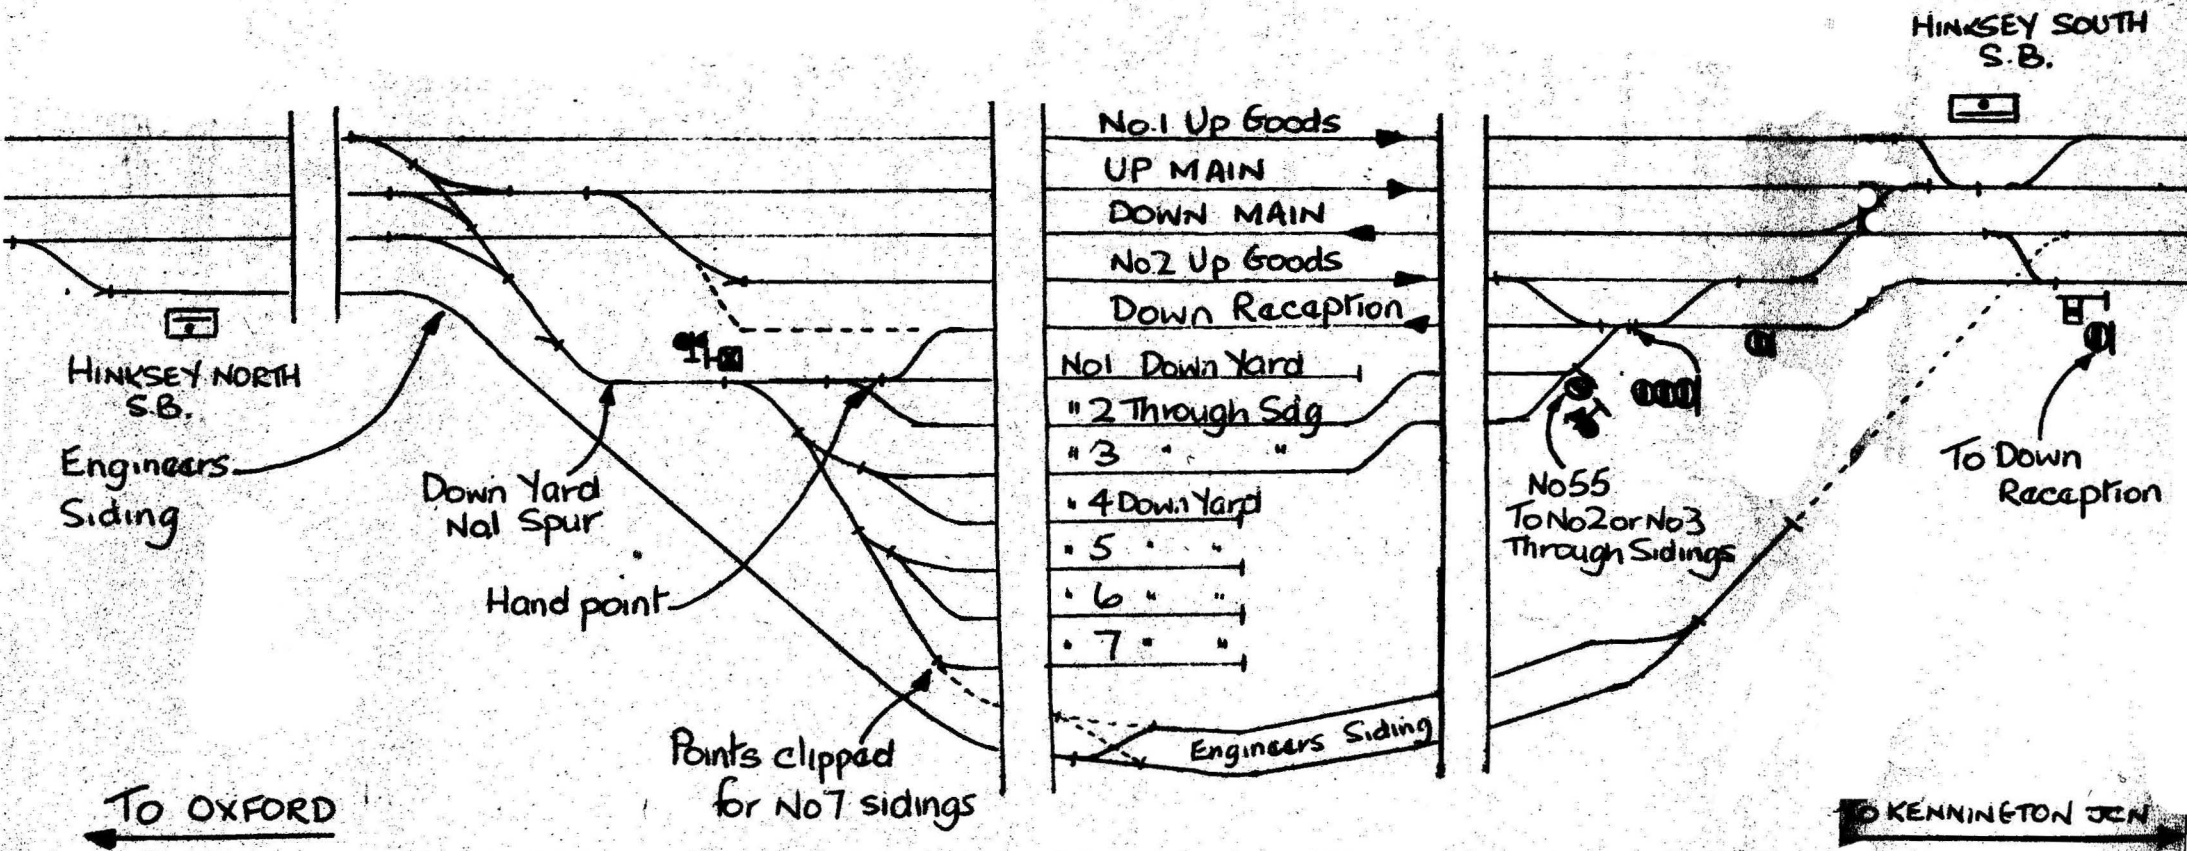 HINKSEY SOUTH
S.B.
No.1 Up Goods
UP MAIN
DOWN MAIN
No2 Up Goods
Down Reception
No1 Down Yard
" 2 Through Sdg
" 3 " "
" 4 Down Yard
" 5 " "
" 6 " "
" 7 " "
Engineers Siding
HINKSEY NORTH
S.B.
Engineers
Siding
Down Yard
No1 Spur
Hand point
Points clipped
for No7 sidings
No55
To No2 or No3
Through Sidings
To Down
Reception
TO OXFORD
TO KENNINGTON JCN